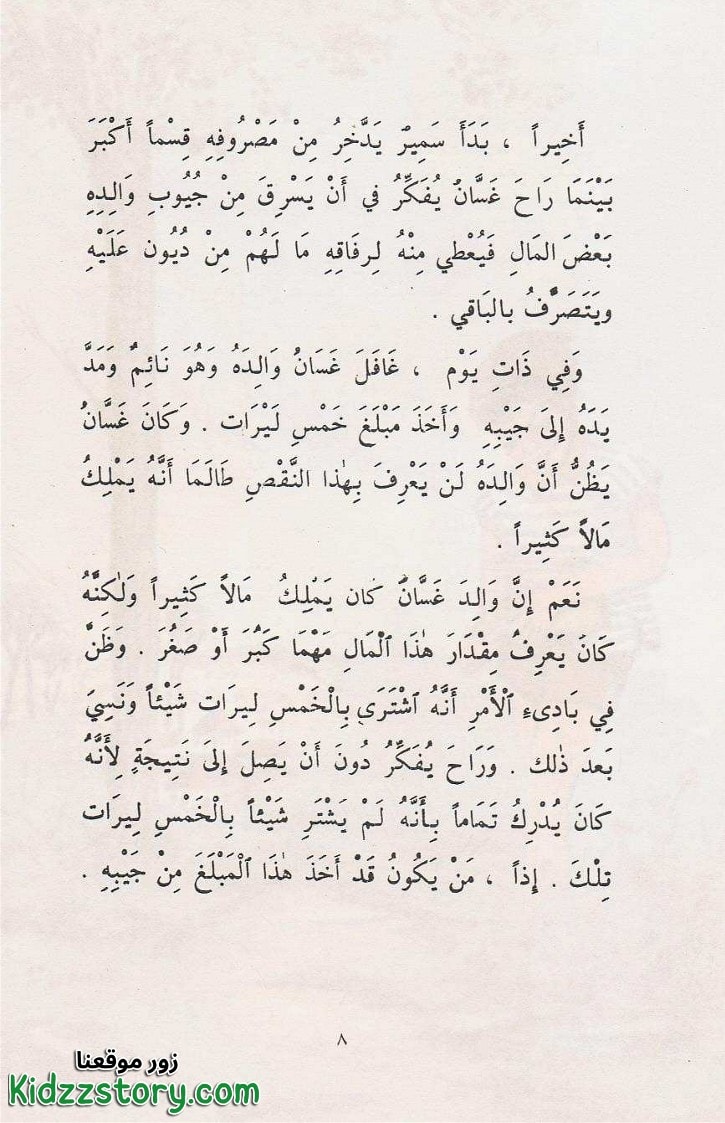 أَخِيراً ، بَدَأَ سَمِيرٌ يَدَّخِرُ مِنْ مَصْرُوفِهِ قِسْماً أَكْبَرَ
بَيْنَمَا رَاحَ غَسَّانُ يُفَكِّرُ في أَنْ يَسْرِقَ مِنْ جُيُوبِ وَالِدِهِ
بَعْضَ المَالِ فَيُعْطي مِنْهُ لِرِفَاقِهِ مَا لَهُمْ مِنْ دُيُون عَلَيْهِ
ويَتَصَرَّفُ بالبَاقي .
وَفِي ذَاتِ يَوْم ، غَافَلَ غَسَانُ وَالِدَهُ وَهُوَ نَائِمٌ وَمَدَّ
يَدَهُ إِلىَ جَيْبِهِ وَأَخَذَ مَبْلَغَ خَمْسِ لَيْرَات . وَكَانَ غَسَّانُ
يَظُنُّ أَنَّ وَالِدَهُ لَنْ يَعْرِفَ بِهٰذا النَّقْصِ طَالَمَا أَنَّهُ يَمْلِكُ
مَالاً كَثِيراً .
نَعَمْ إِنَّ وَالِدَ غَسَّانَ كَان يَمْلِكُ مَالاً كَثِيراً وَلٰكِنَّهُ
كَانَ يَعْرِفُ مِقْدَارَ هٰذَا ٱلْمَالِ مَهْمَا كَبُرَ أَوْ صَغُرَ . وَظَنَّ
فِي بَادِىءِ ٱلْأَمْرِ أَنَّهُ ٱشْتَرَى بِالْخَمْسِ لِيرَات شَيْئاً وَنَسِيَ
بَعدَ ذٰلك . وَرَاحَ يُفَكِّرُ دُونَ أَنْ يَصِلَ إِلىَ نَتِيجَةٍ لِأَنَّهُ
كَانَ يُدْرِكُ تَمَاماً بِأَنَّهُ لَمْ يَشْتَرِ شَيْئاً بِالْخَمْسِ لِيرَات
تِلْكَ . إِذاً ، مَنْ يَكُونُ قَدْ أَخَذَ هٰذَا ٱلْمَبْلَغَ مِنْ جَيْبِهِ .
٨
زور موقعنا
Kidzzstory.com